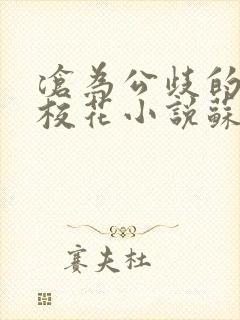 滄為公歧的
校花小說蘇
賽夫杜